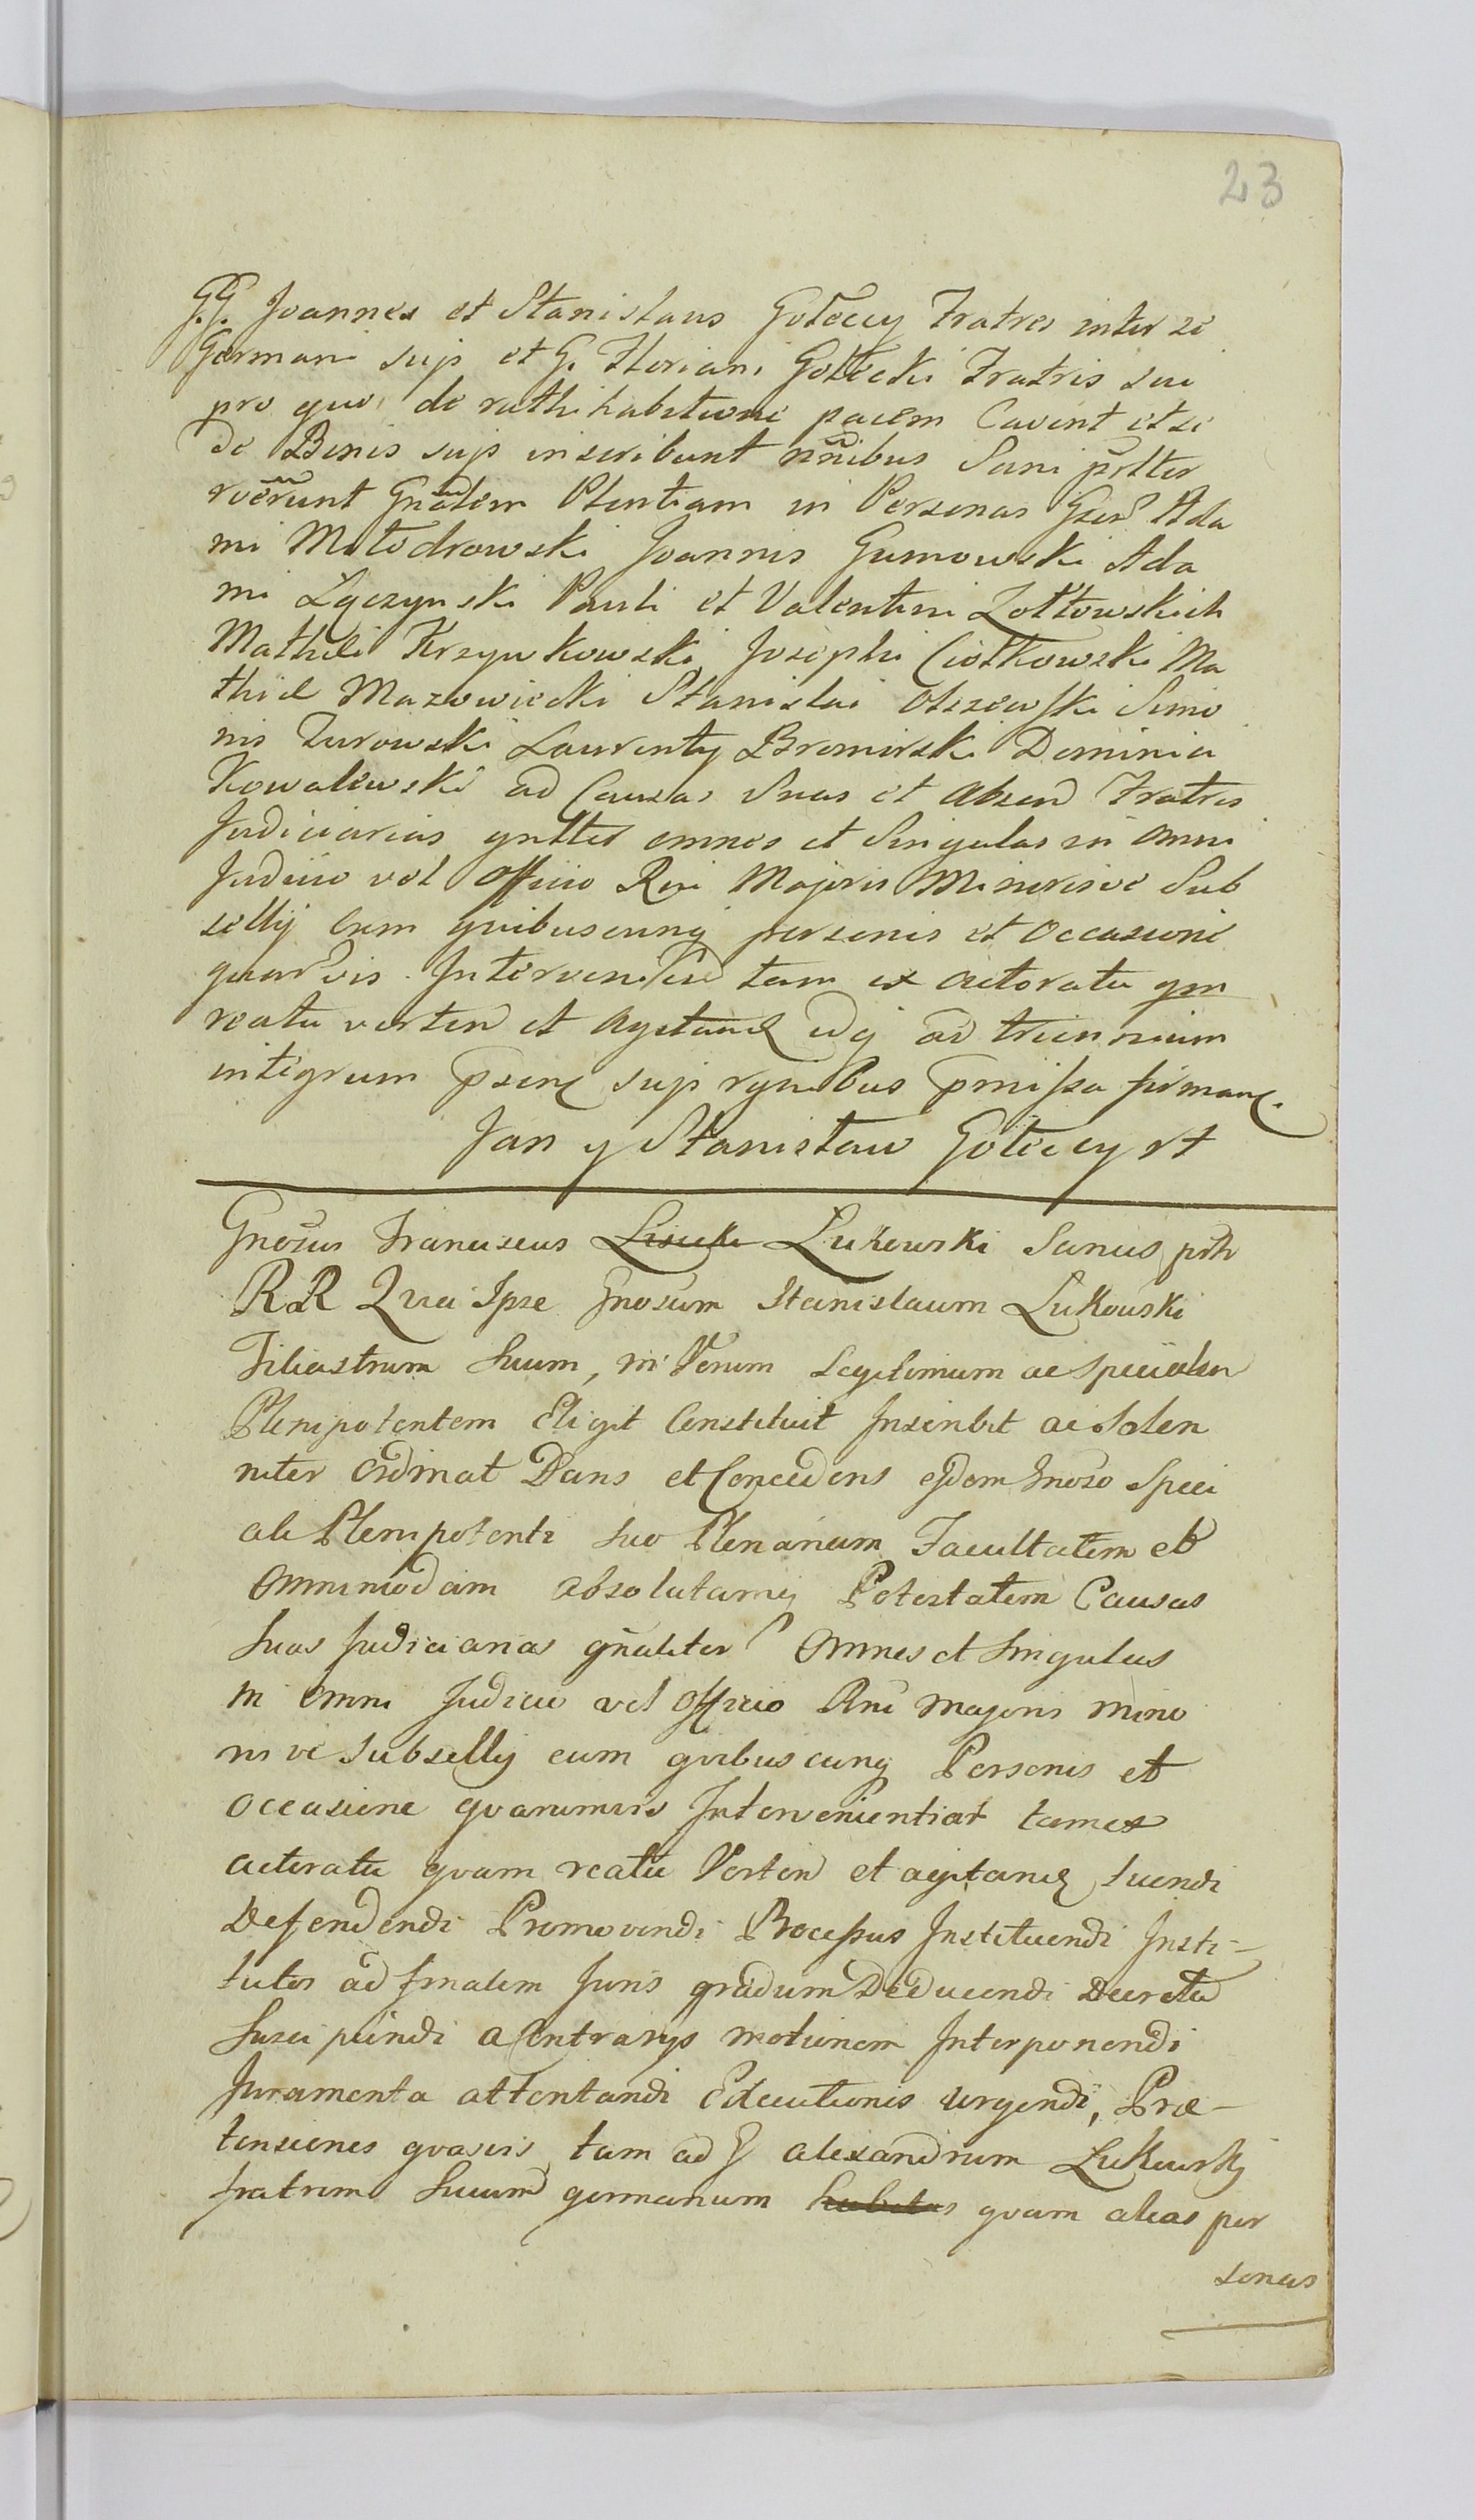 23
G.G. Joannes et Stanislaus Gołeccy Fratres inter se
Germani suis et G. Floriani Gołecki Fratris sui
pro quo de rathihabitione pacem Cavent et se
de Bonis suis inscribunt nnibus Sani prltter
roverunt Gnalem Plentiam in Personas Gser Ada
mi Młodrowski Joannis Gumowski Ada
mi Łączynski Pauli et Valentini Zołtowskich
Mathei Krzywkowski Josephi Ciołkowski Ma
thiæ Mazowiecki Stanislai Olszewski Simo
nis Zurowski Laurenty Bromirski Dominici
Kowalewski ad Causas Suas et Absen Fratris
Judiciarias gnlter omnes et Singulas in Omni
Judicio vel Officio Rni Majoris Minorisve Sub
selly Cum quibuscunq personis et Occasione
quarvis Intervenien tam ex Actoratu qm
reatu verten et Agitand idq ad triennium
integrum psens suis rgnibus pmissa firmans.
Jan y Stanisław Gołeccy
Gnosus Franciscus Lisicki Łukowski Sanus plr
RR Quia Ipse Gnosum Stanislaum Łukowski
Filiastrum Suum, in Verum Legitimum ac specialem
Plenipotentem Eligit Constituit Inscribit ac Solen
niter Ordinat Dans et Concedens ejdem Gnoso Speci
ali Plenipotenti suo Plenariam Facultatem et
Omnimodam absolutamq Potestatem Causas
Suas Judiciarias gnaliter Omnes et Singulas
in omni Judicio vel Officio Rni majoris mino
risve Subselly cum qvibuscunq Personis et
Occasione qvarumvis Intervenientiar tam ex
actoratu qvam reatu Verten et agitand tuendi
Defendendi Promovendi Processus Instituendi Insti-
tutos ad finalem Juris gradum Deducendi Decreta
Suscipiendi a Contrarys motionem Interponendi
Juramenta attentandi Executionis urgendi, Præ-
tensiones qvasvis tam ad G alexandrum Łukowski
fratrem Suum germanum habitas qvam alias per
sonas